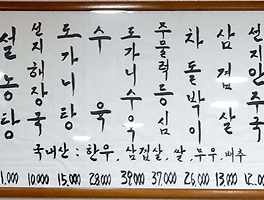 설농탕
선지해장국
도가니탕
수육
도가니수육
주물럭등심
차돌박이
삼겹살
선지안주국
국내산 : 한우, 삼겹살, 쌀, 무우, 배추
1.000 10.000 15.000 28.000 39.000 37.000 26.000 13.000 12.000